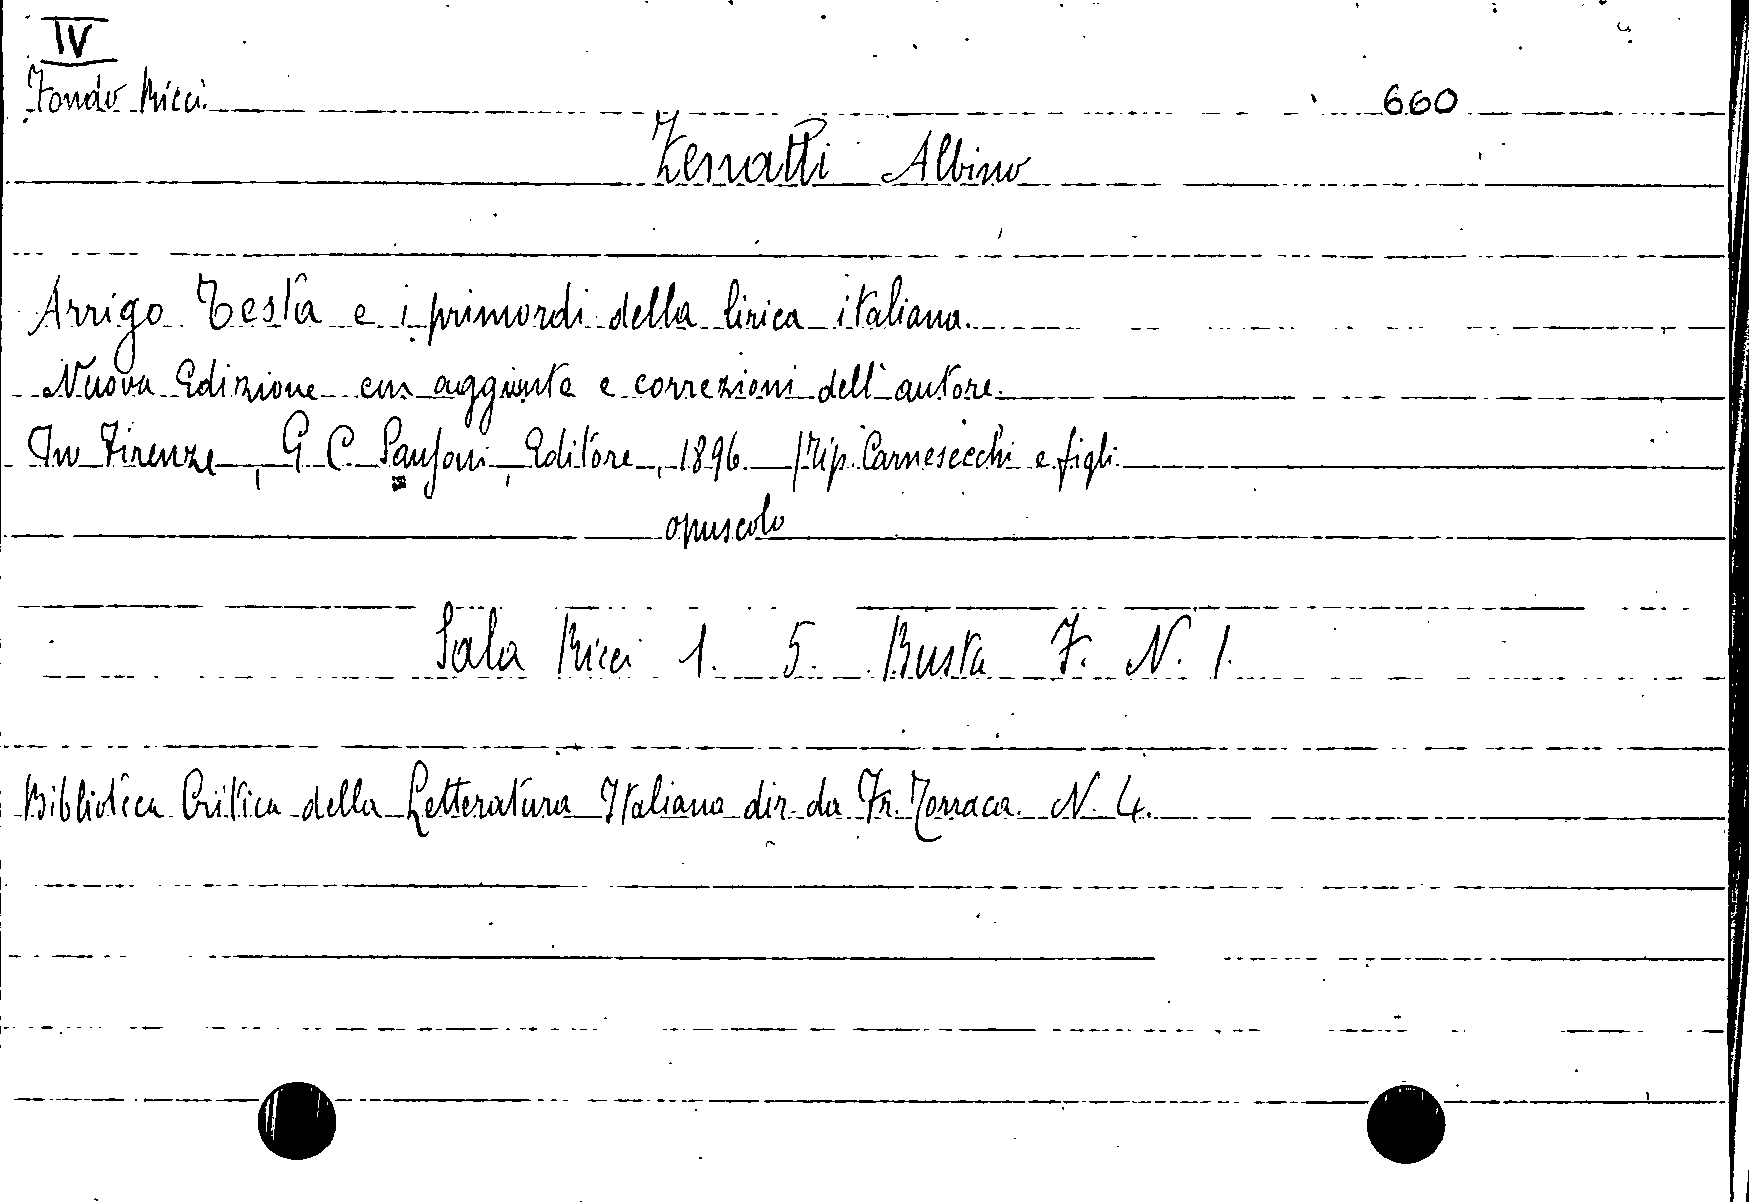 IV
Fondo Ricci. 660
Zenatti Albino
Arrigo Testa e i primordi della lirica italiana.
Nuova Edizione con aggiunte e correzioni dell'autore.
In Firenze, G C Sansoni, Editore, 1896. /Tip. Carnesecchi e figli
opuscolo
Sala Ricci 1. 5. Busta 7. N. 1.
Biblioteca Critica della Letteratura Italiana dir. da Fr. Torraca. N. 4.